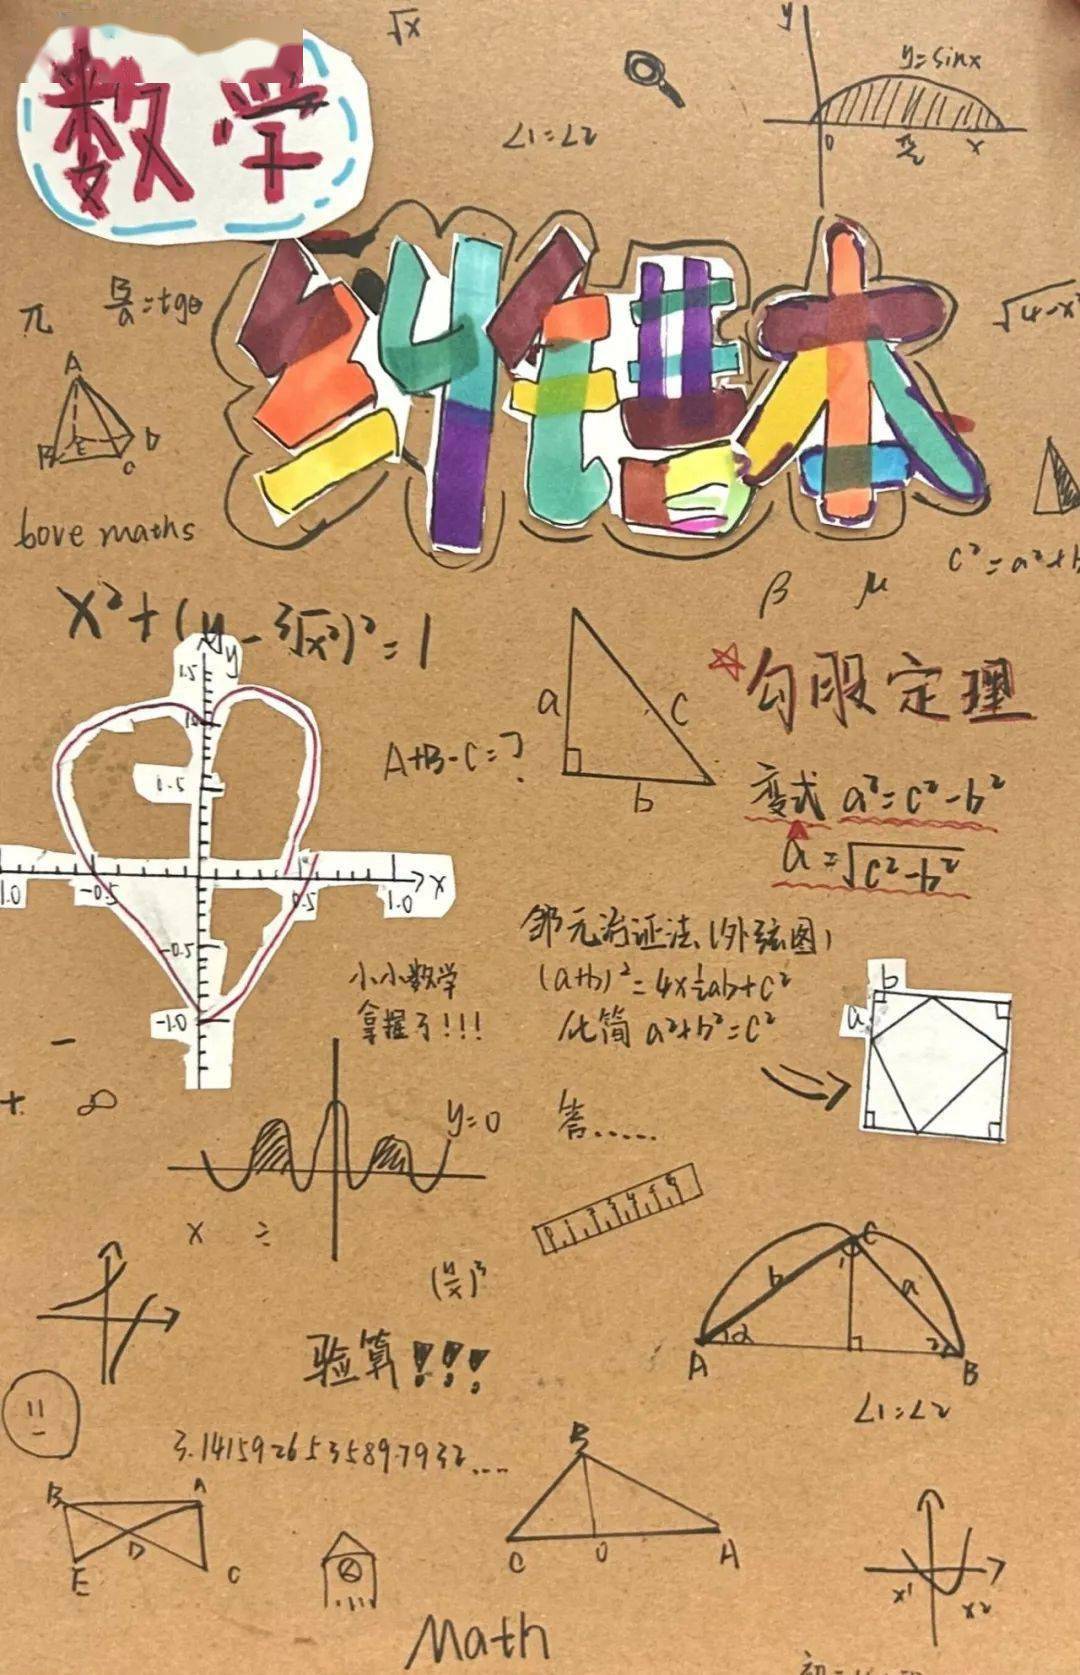 √x
y
y=sinx
数学
∠1=∠2
0
π/2
x
纠错本
π
B/a=tgθ
√4-x²
A
B
E
D
C
bove maths
c²=a²+b
β
μ
x²+(y-³√x²)²=1
y
1.5
1.0
0.5
1.0
-0.5
0.5
1.0
x
-0.5
-1.0
a
c
b
A+B-C=?
勾股定理
变式 a²=c²-b²
a=√c²-b²
邹元治证法(外弦图)
(a+b)²=4×½ab+c²
化简 a²+b²=c²
b
a
小小数学
拿握了!!!
-
+
∞
y=0
答……
x
÷
(y/x)³
C
b
a
1
α
2
A
B
∠1=∠2
验算!!!
3.1415926535897932....
B
A
D
E
C
B
C
0
A
x¹
x2
Math